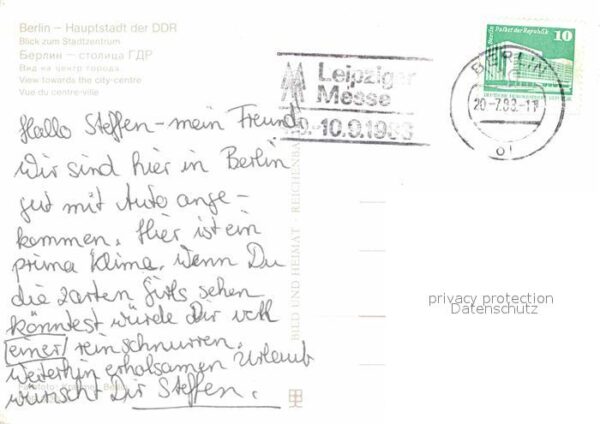 Berlin – Hauptstadt der DDR
Blick zum Stadtzentrum
Берлин – столица ГДР
Вид на центр города
View towards the city-centre
Vue du centre-ville
Hallo Steffen – mein Freund!
Wir sind hier in Berlin
gut mit Auto ange-
kommen. Hier ist ein
prima Klima. Wenn Du
die zarten Girls sehen
könntest würde Dir
einer reinschnurren.
Weiterhin erholsamen Urlaub
wünscht Dir Steffen.
BILD UND HEIMAT · REICHENBACH
Leipziger
Messe
-10.9.1983
Palast der Republik
Berlin
10
BERLIN
20.-7.83.-11
privacy protection
Datenschutz